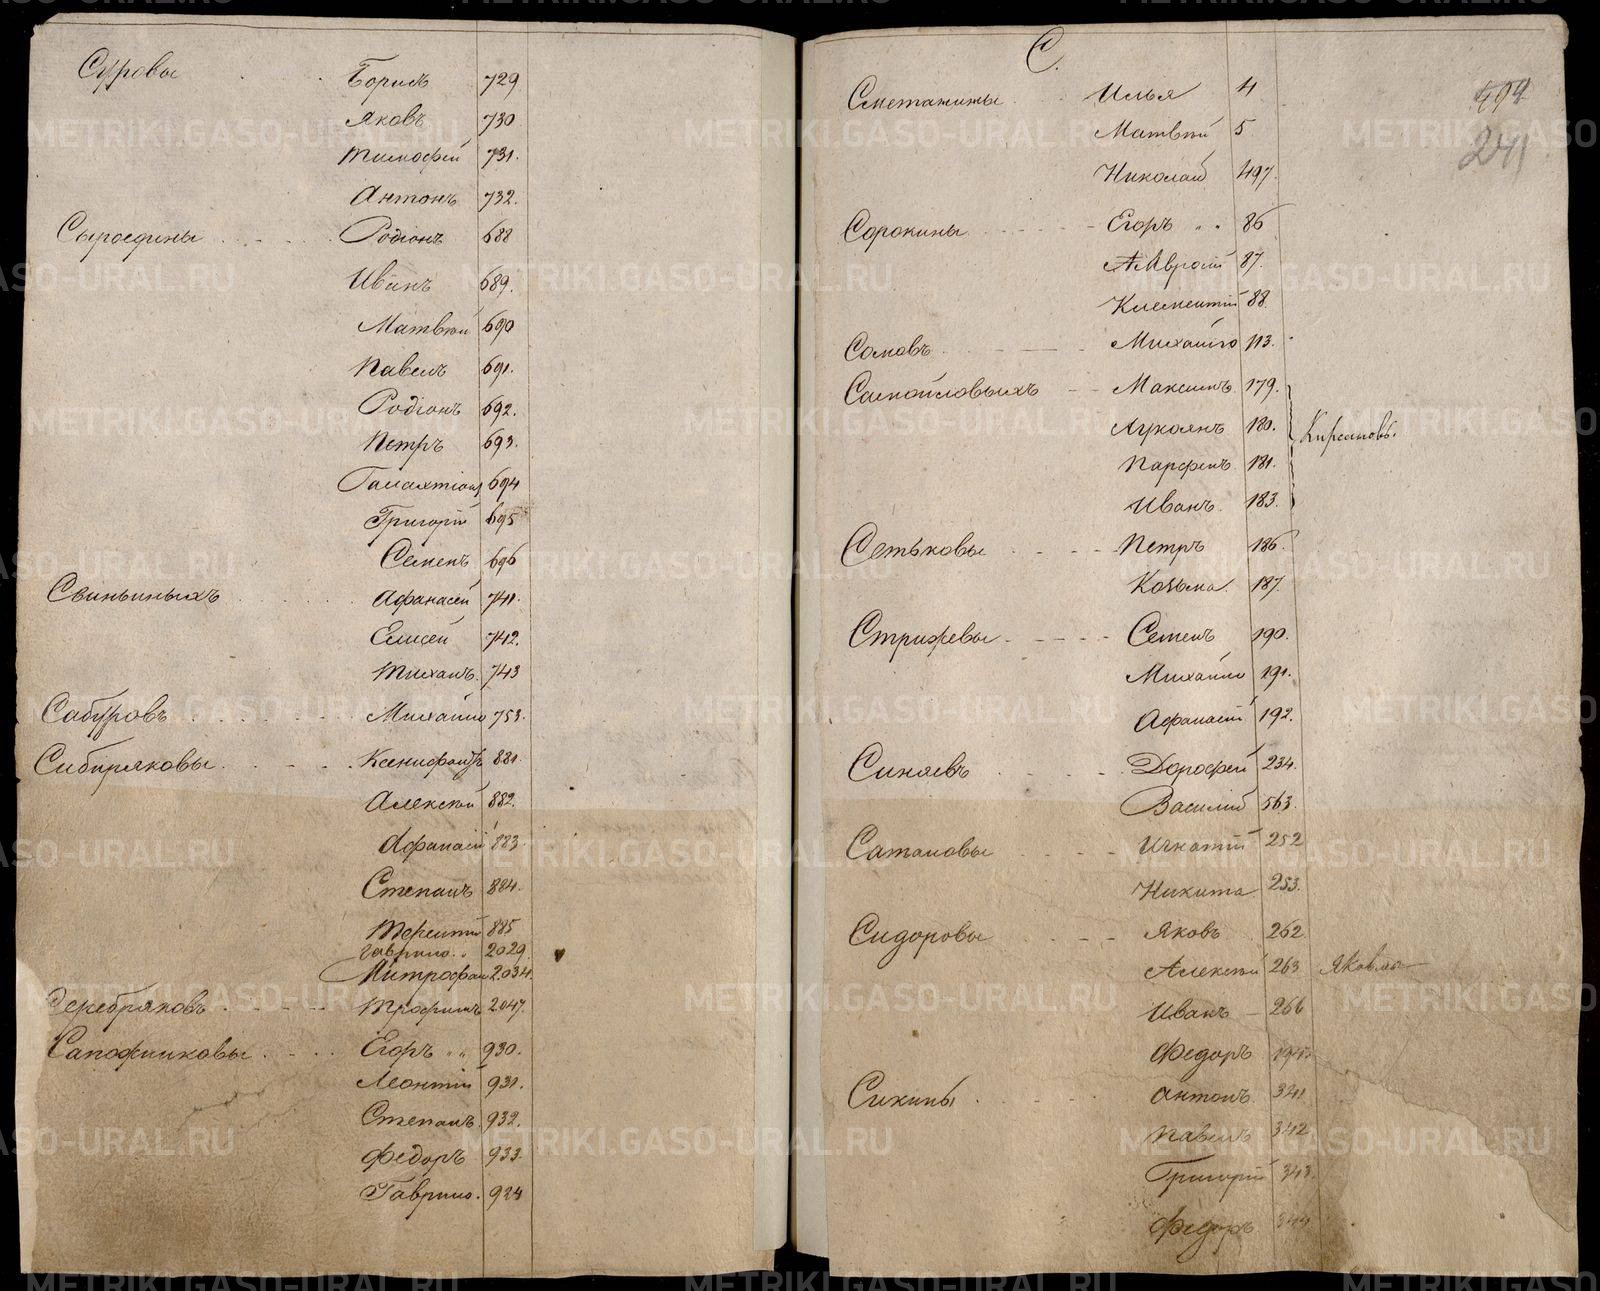 Суровы Борисъ 729
Яковъ 730
Тимофей 731.
Антонъ 732.
Сыроедины Родіонъ 688
Иванъ 689.
Матвѣй 690
Павелъ 691.
Родіонъ 692.
Петръ 693.
Галахтіонъ 694
Григорій 695
Семенъ 696
Свиньиныхъ Афанасей 741.
Елисей 742.
Тихонъ. 743
Сабуровъ Михайло 753.
Сибиряковы Ксенофонтъ 881.
Алексѣй 882.
Афанасій 883
Степанъ 884.
Терентій 885
Гаврило 2029
Митрофанъ 2034.
Серебряковъ Трофимъ 2047.
Сапожниковы Егоръ 930.
Леонтій 931.
Степанъ 932.
Федоръ 933.
Гаврило. 924
С.
494
241
Сметанины Илья 4
Матвѣй 5
Николай 497.
Сорокины Егоръ 86
Амвросій 87.
Клементій 88
Сомовъ Михайло 113.
Самойловыхъ Максимъ 179.
Лукоянъ 180.
Кирсановъ.
Парфенъ 181.
Иванъ. 183.
Сетьковы Петръ 186.
Козьма 187.
Стрижевы Семенъ 190.
Михайло 191.
Афанасій 192.
Синяевъ Дорофей 234.
Василій 563.
Сатановы Игнатій 252
Никита 253.
Сидоровы Яковъ 262
Алексѣй 263 Яковлъ
Иванъ 266
Федоръ
Сикины Антонъ 341
Павелъ 342
Григорій 343.
Федоръ 344
METRIKI.GASO-URAL.RU